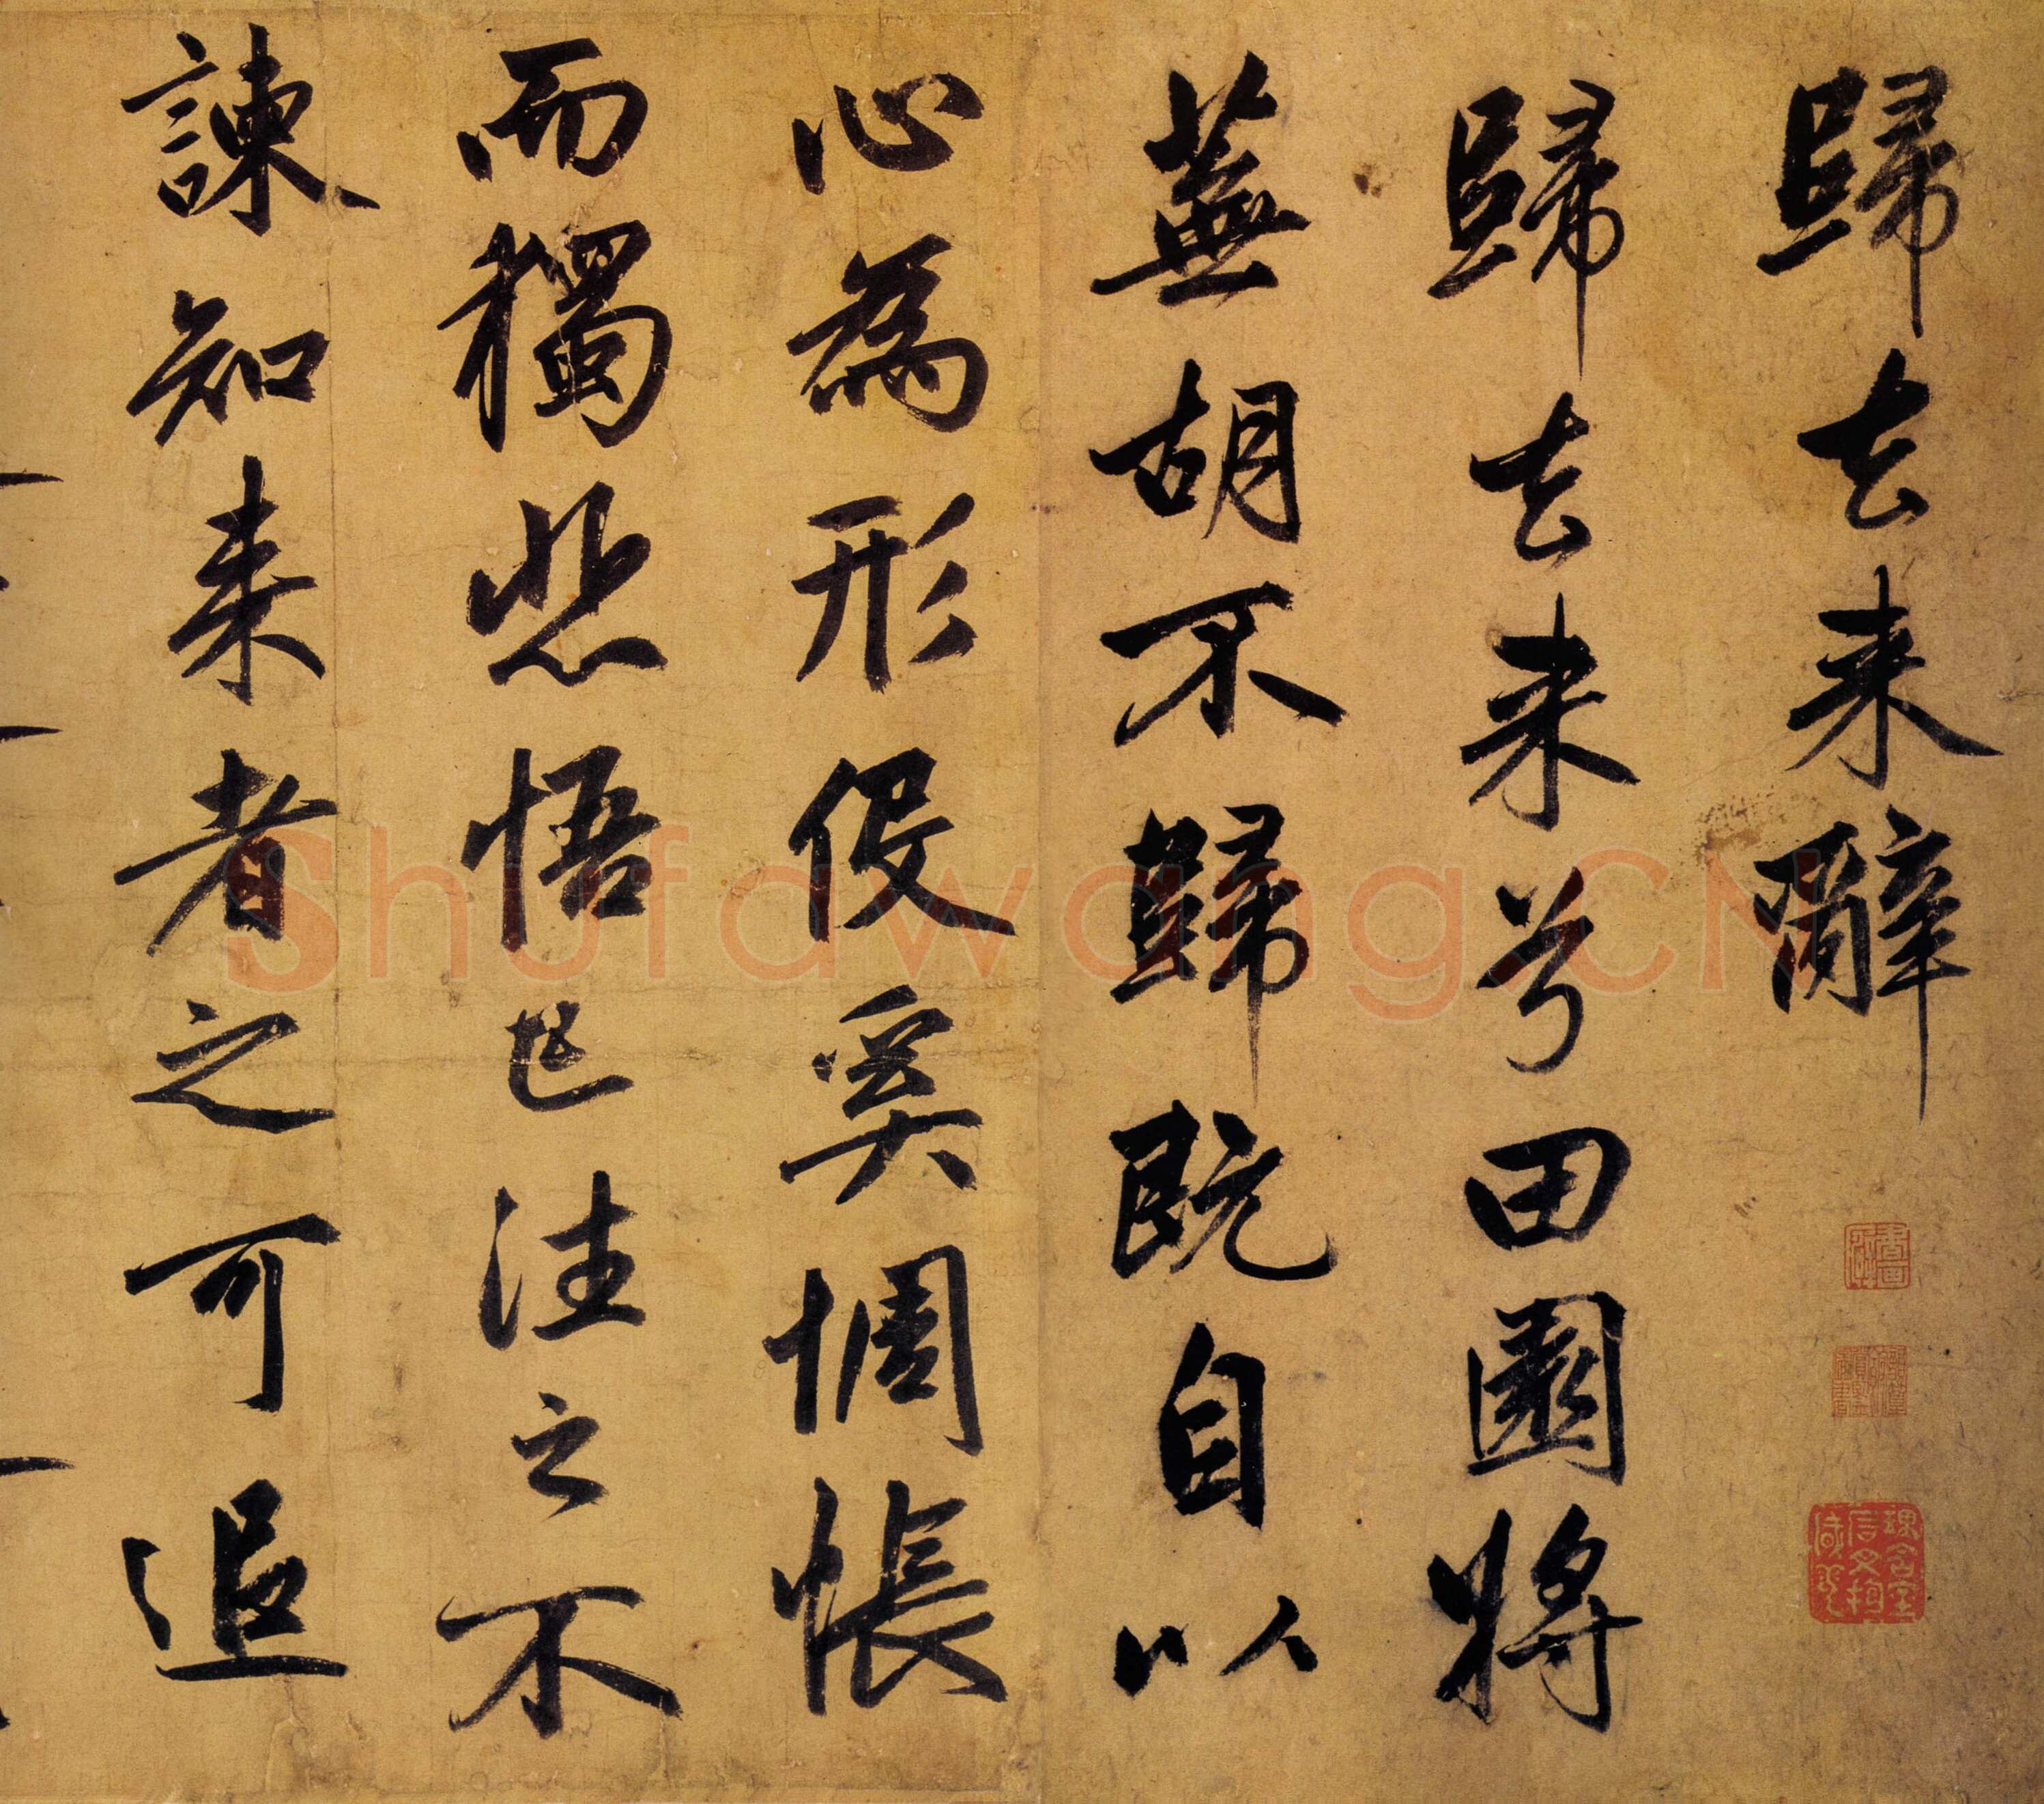 歸去来辭
歸去来兮田園將
蕪胡不歸既自以
心為形役奚惆悵
而獨悲悟已往之不
諫知来者之可追
Shufawang.CN